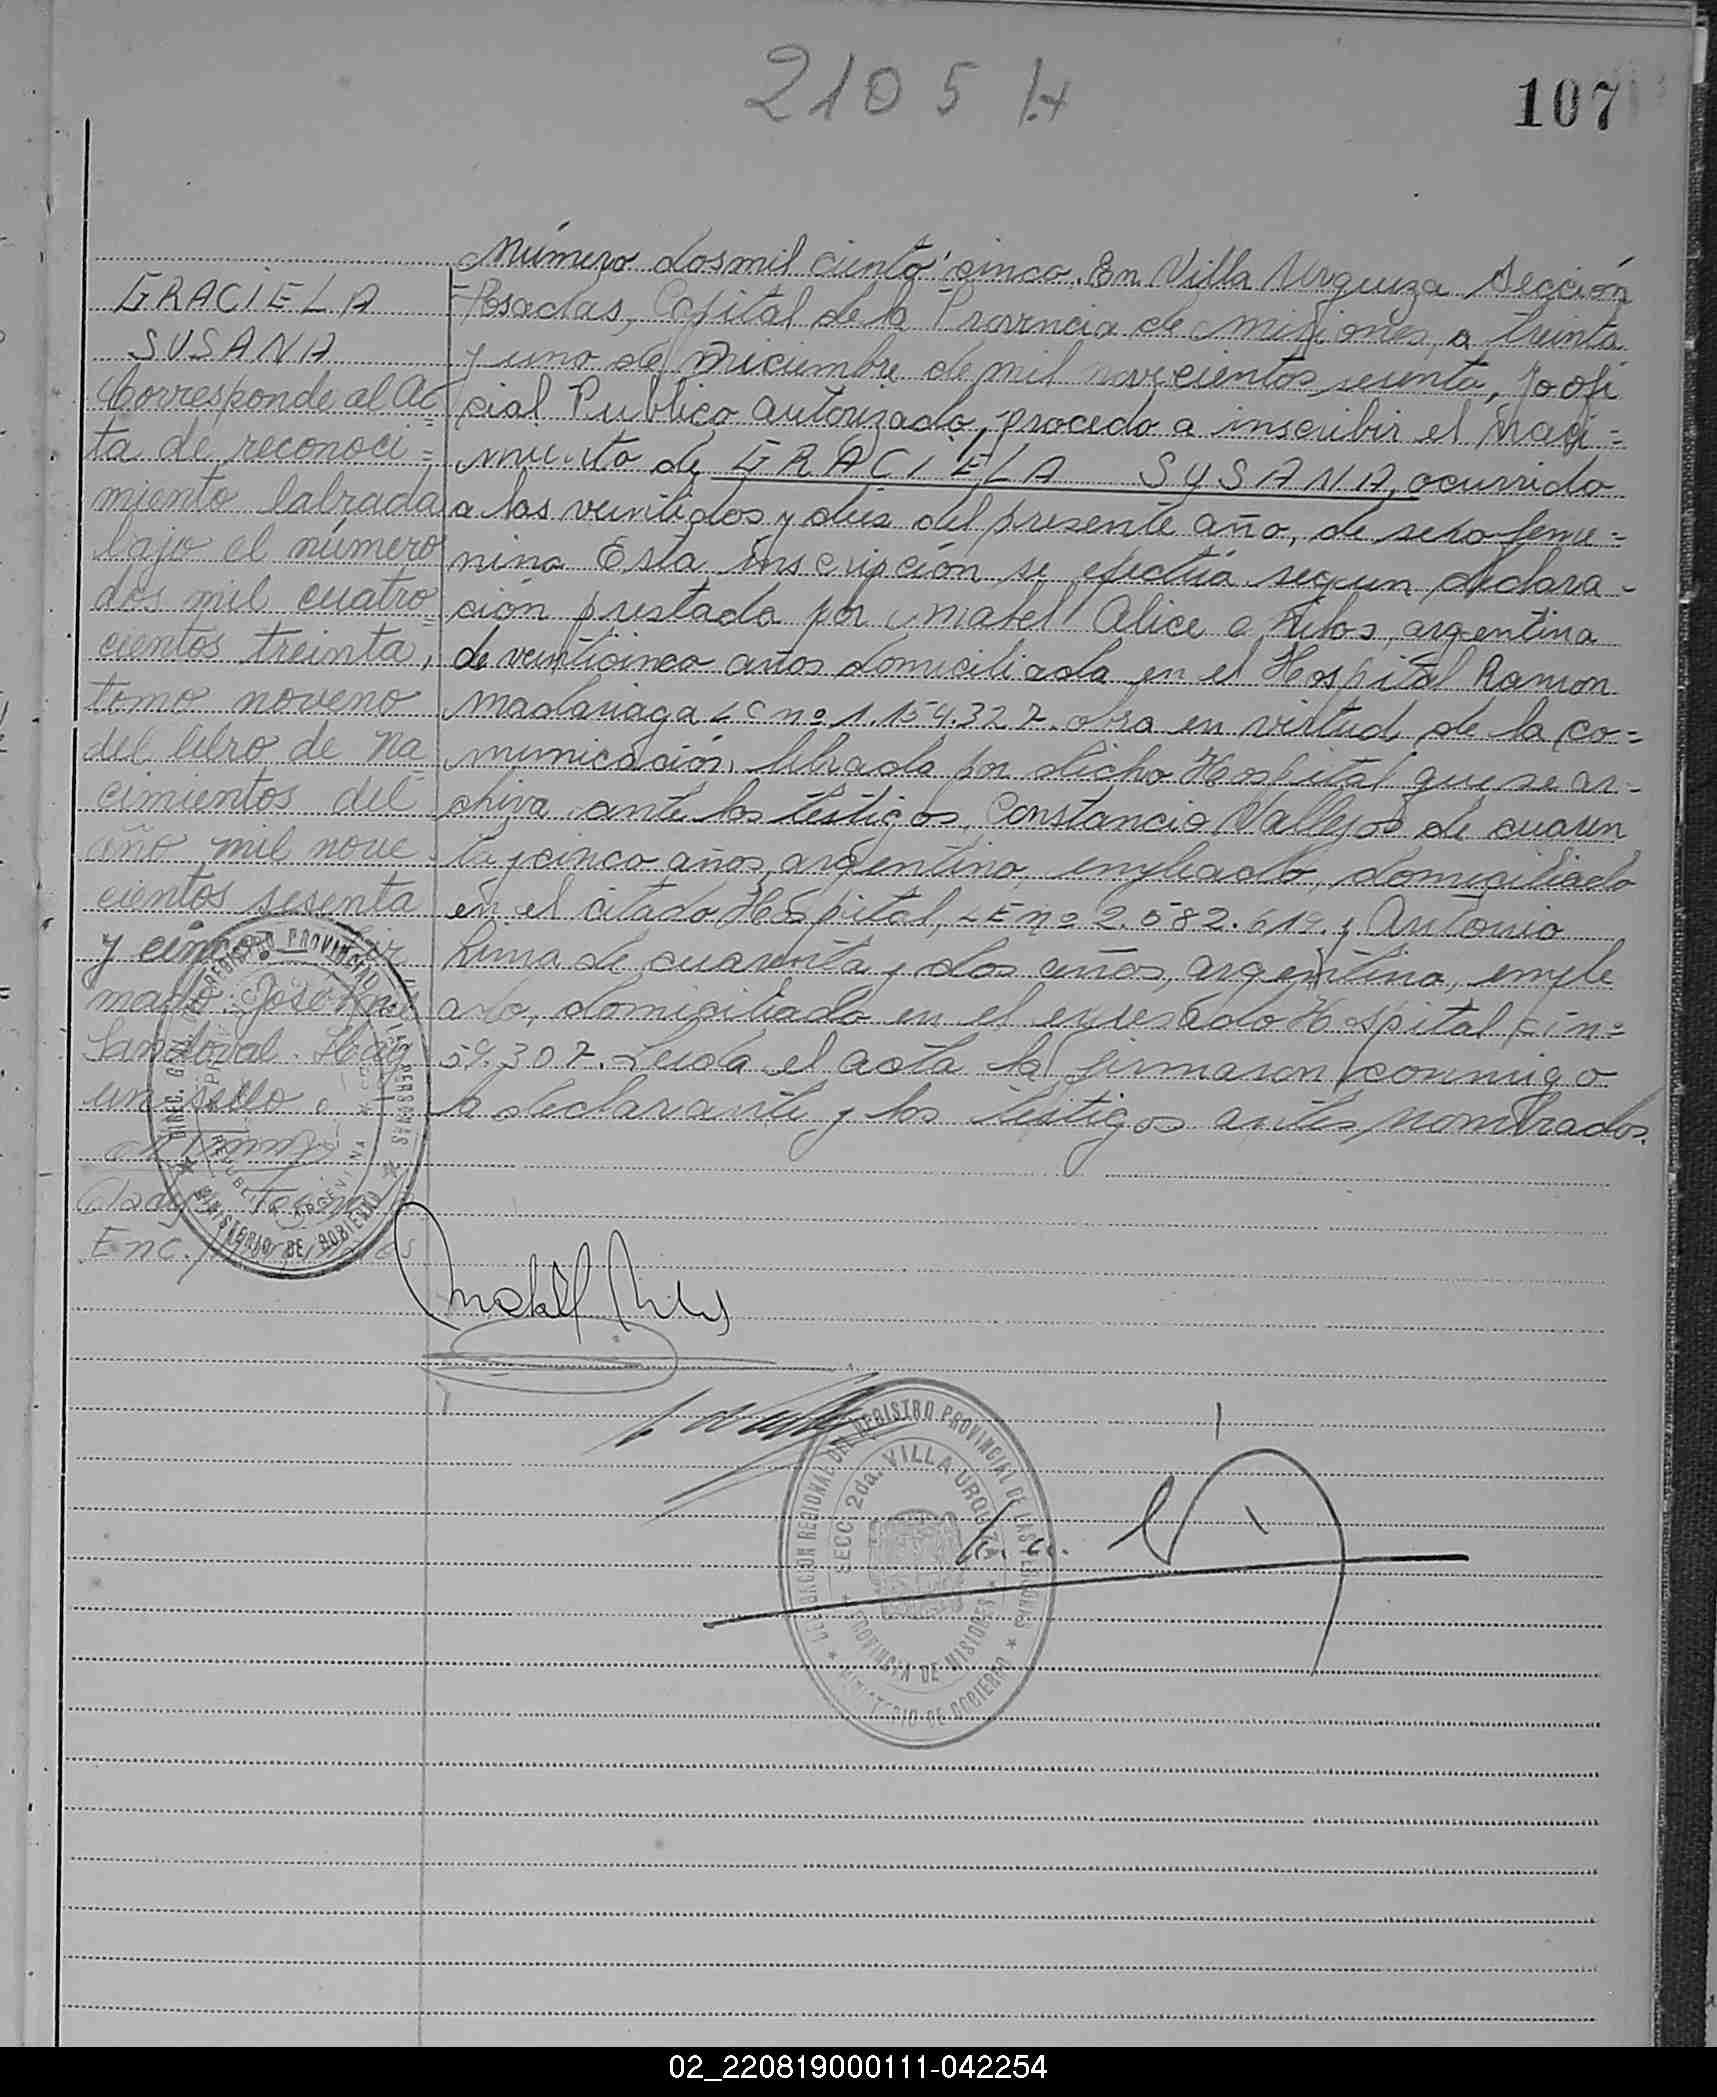 2105 H
107
GRACIELA
SUSANA
Corresponde al Ac=
ta de reconoci=
miento labrada
bajo el número
dos mil cuatro=
cientos treinta,
tomo noveno
del libro de Na=
cimientos del
año mil nove
cientos sesenta
y cinco. Fir
mado: José
Sandoval. Hay
un sello.
Enc.
Número dosmil ciento cinco. En Villa Urquiza Sección
Posadas, Capital de la Provincia de Misiones, a treinta
y uno de Diciembre de mil novecientos sesenta, Yo ofi
cial Publico autorizado, procedo a inscribir el Naci=
miento de GRACIELA SUSANA, ocurrido
a las veintidos y dies del presente año, de sexo feme=
nino Esta inscripción se efectúa segun declara-
ción prestada por Mabel Alice Ribos, argentina
de veinticinco años domiciliada en el Hospital Ramon
Madariaga LC nº 1.154.327. obra en virtud de la co=
municación, librada por dicho Hospital que se ar-
chiva ante los testigos, Constancio Vallejos de cuaren
ta y cinco años, argentino, empleado, domiciliado
en el citado Hospital, LE nº 2.582.619. y Antonio
Lima de cuarenta y dos años, argentino, emple
ado, domiciliado en el expresado Hospital CI nº
59.307. Leida el acta la firmaron conmigo
la declarante y los testigos antes nombrados.
DIREC. GRAL. DEL REGISTRO PROVINCIAL DE LAS PERSONAS
REPUBLICA ARGENTINA
MINISTERIO DE GOBIERNO
Mabel Ribos
DELEGACION REGIONAL DEL REGISTRO PROVINCIAL DE LAS PERSONAS
SECC. 2da. VILLA URQUIZA
PROVINCIA DE MISIONES
MINISTERIO DE GOBIERNO
02_220819000111-042254